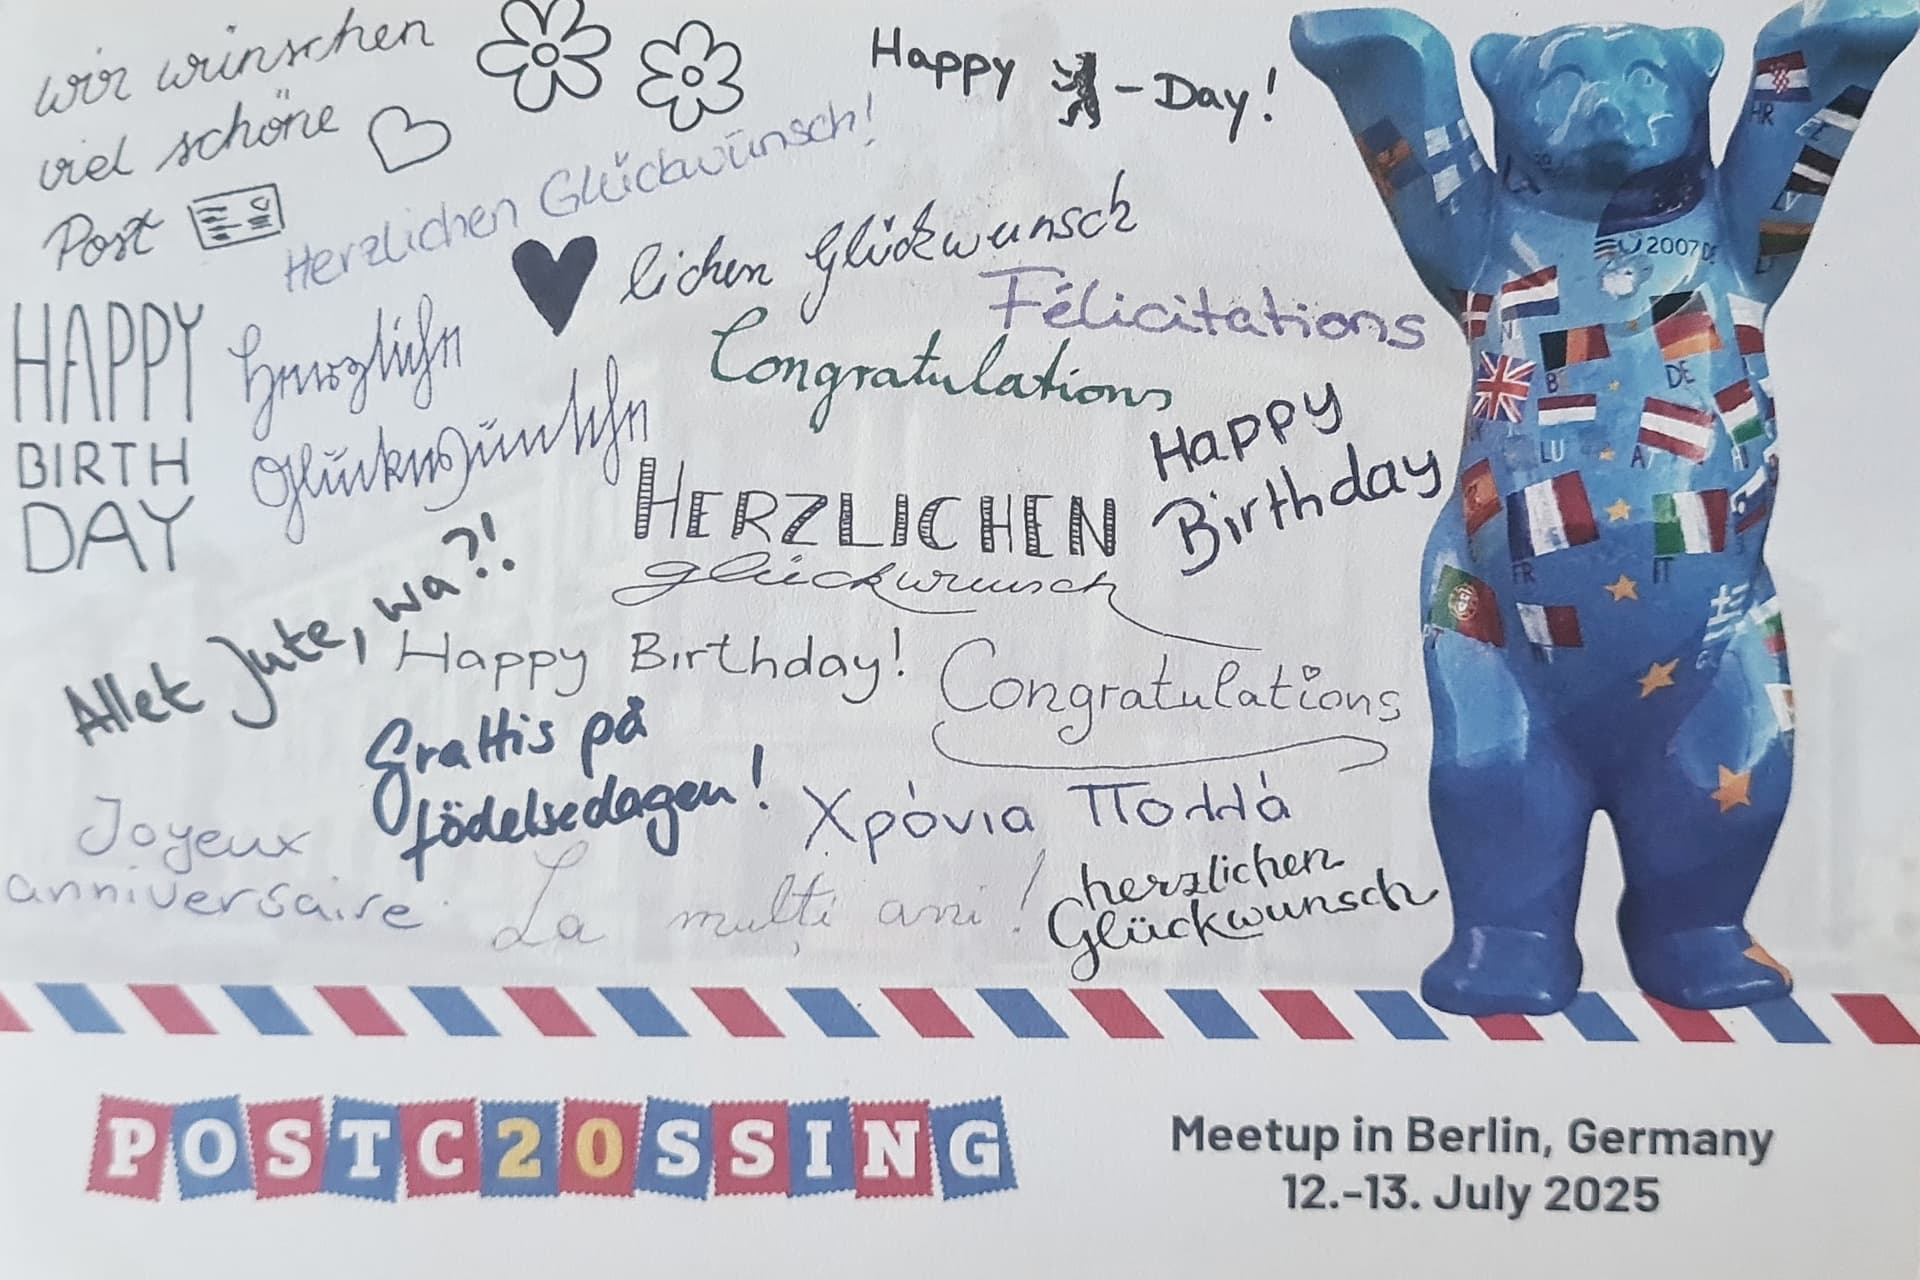 wir wünschen
viel schöne
Post
Happy - Day!
Herzlichen Glückwünsch!
lichen Glückwunsch
Félicitations
HAPPY
BIRTH
DAY
Herzlichen
Glückwünschen
Congratulations
Happy
Birthday
HERZLICHEN
glückwunsch
Allet Jute, wa?!
Happy Birthday!
Congratulations
Grattis på
födelsedagen!
Χρόνια Πολλά
Joyeux
anniversaire
La mulți ani!
herzlichen
Glückwunsch
HR
LV
2007 DE
B
DE
LU
A
FR
IT
PT
POSTC20SSING
Meetup in Berlin, Germany
12.-13. July 2025